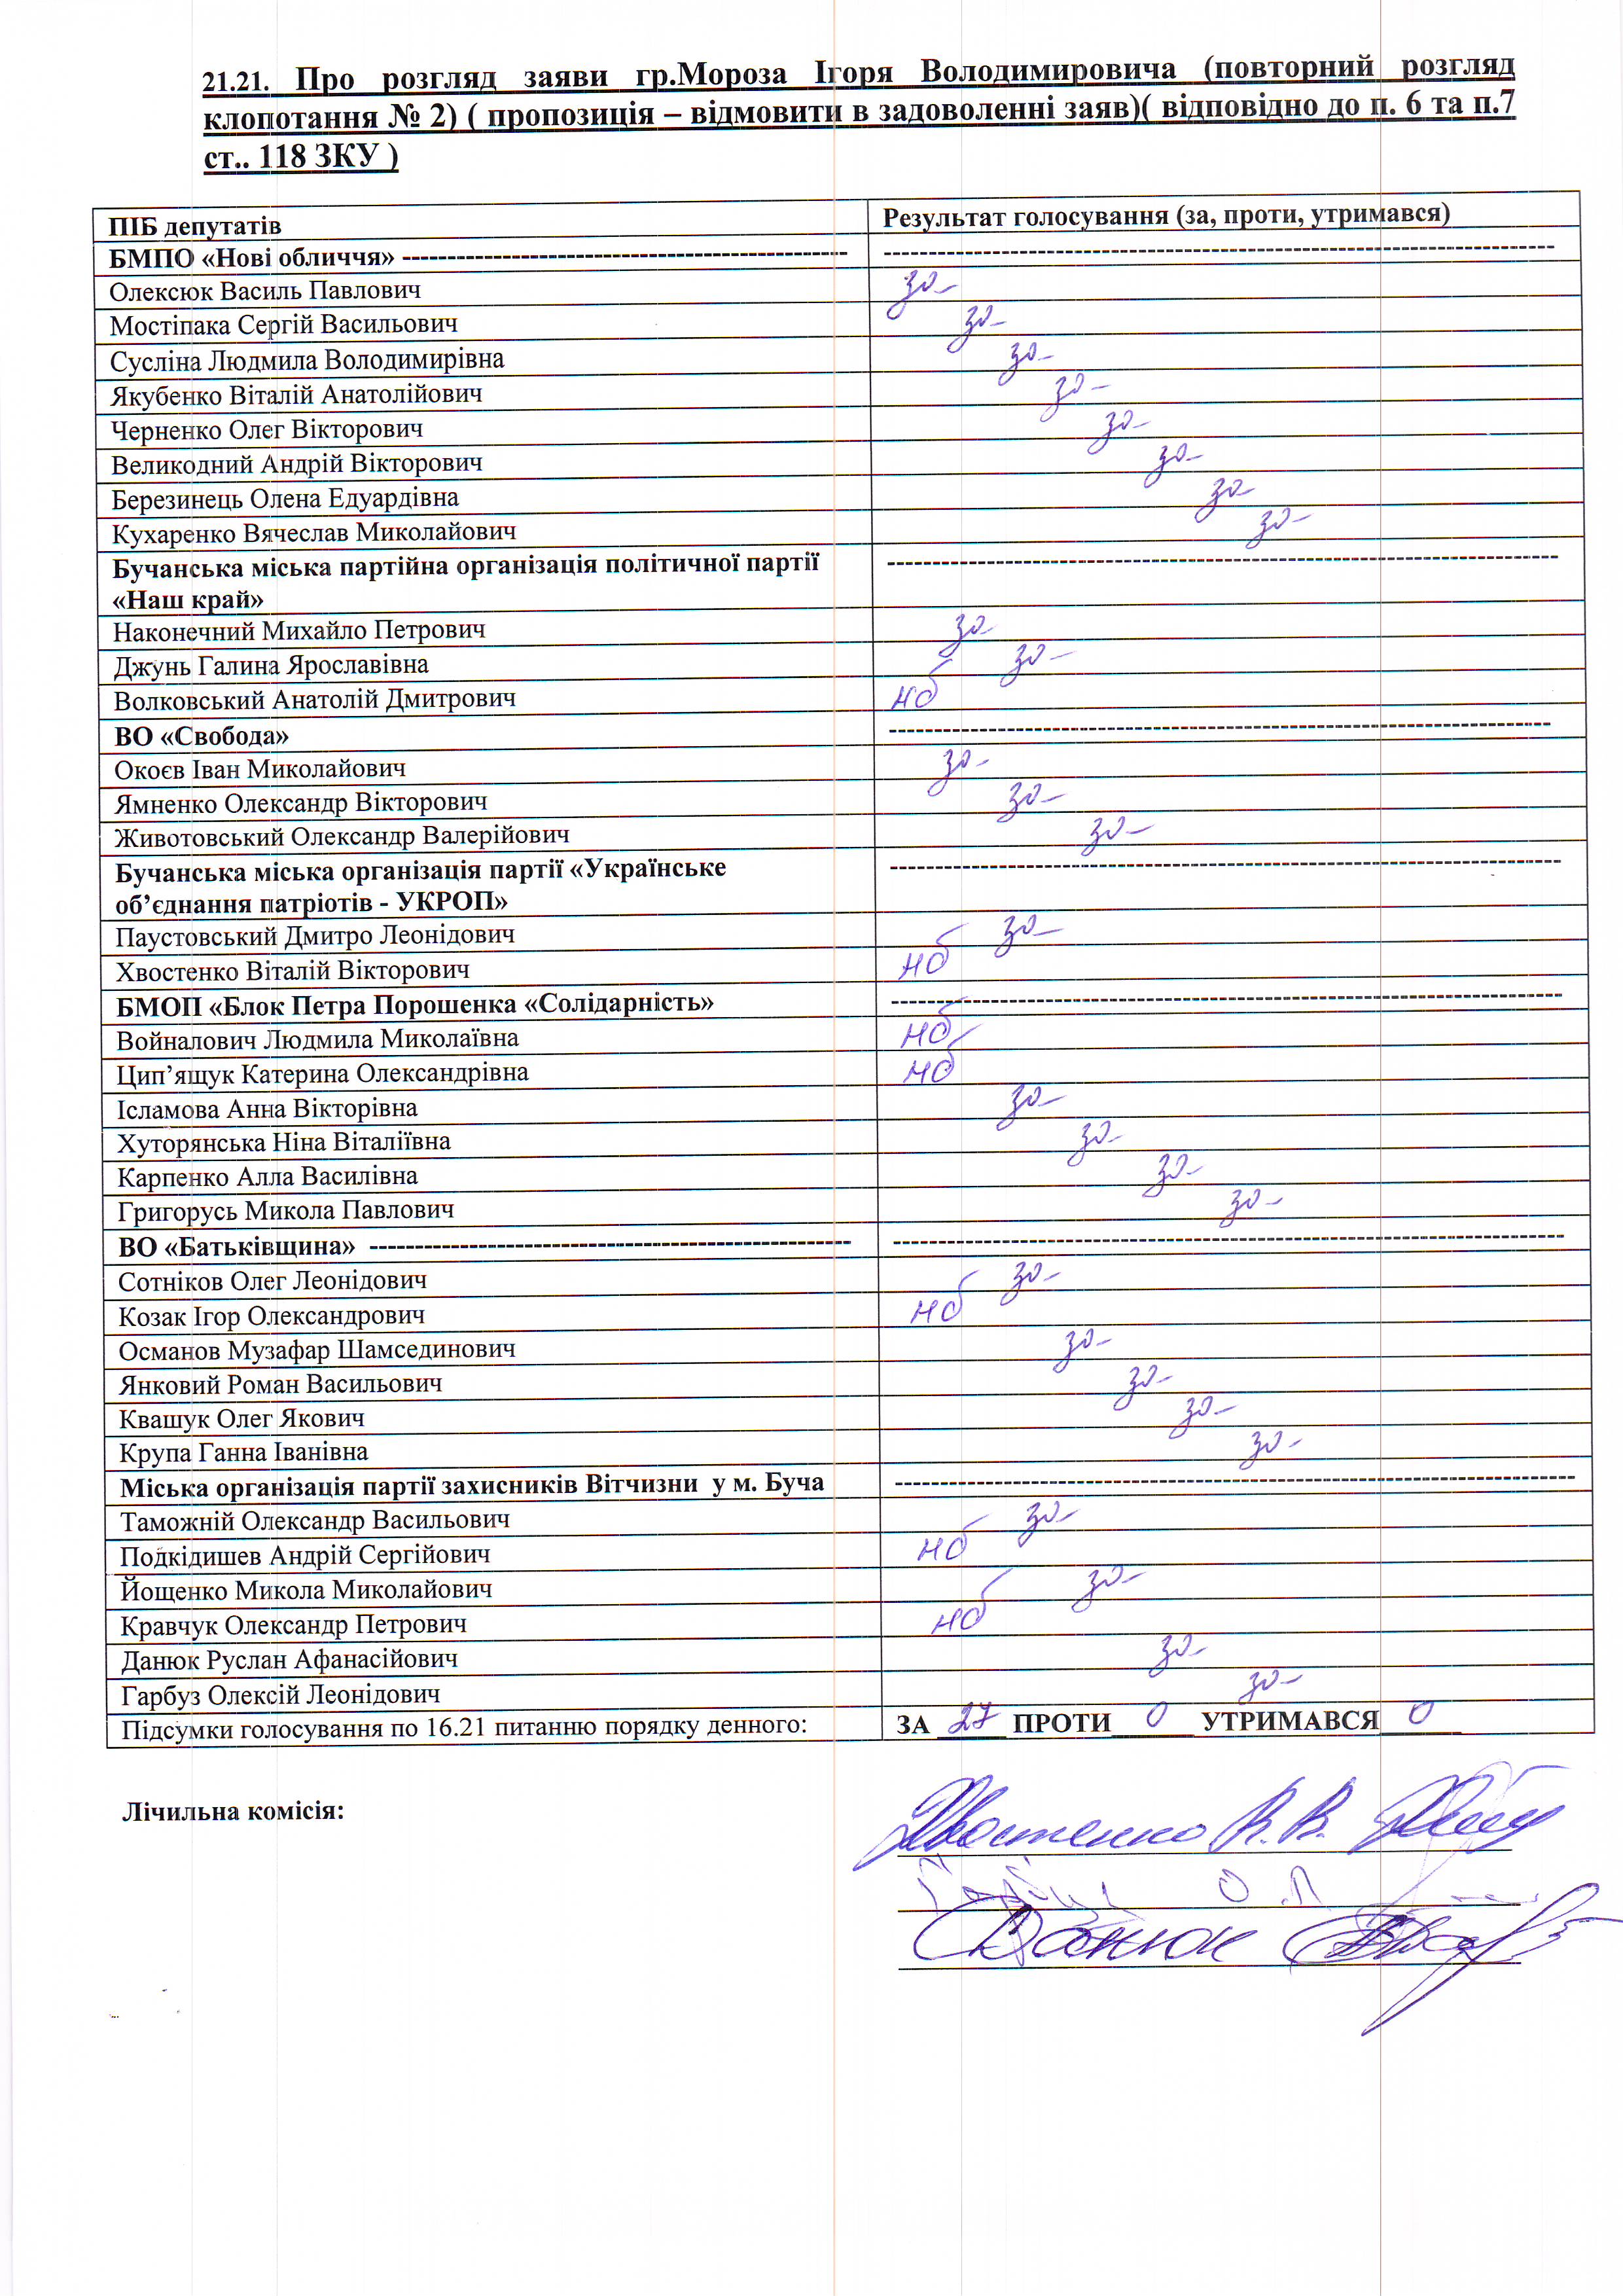 21.21. Про розгляд заяви гр.Мороза Ігоря Володимировича (повторний розгляд
клопотання № 2) ( пропозиція – відмовити в задоволенні заяв)( відповідно до п. 6 та п.7
ст.. 118 ЗКУ )
ПІБ депутатів Результат голосування (за, проти, утримався)
БМПО «Нові обличчя» -------------------------------------------------- ---------------------------------------------------------------------------
Олексюк Василь Павлович за
Мостіпака Сергій Васильович за
Сусліна Людмила Володимирівна за
Якубенко Віталій Анатолійович за
Черненко Олег Вікторович за
Великодний Андрій Вікторович за
Березинець Олена Едуардівна за
Кухаренко Вячеслав Миколайович за
Бучанська міська партійна організація політичної партії ---------------------------------------------------------------------------
«Наш край»
Наконечний Михайло Петрович за
Джунь Галина Ярославівна за
Волковський Анатолій Дмитрович нб
ВО «Свобода» ---------------------------------------------------------------------------
Окоєв Іван Миколайович за
Ямненко Олександр Вікторович за
Животовський Олександр Валерійович за
Бучанська міська організація партії «Українське ---------------------------------------------------------------------------
об’єднання патріотів - УКРОП»
Паустовський Дмитро Леонідович за
Хвостенко Віталій Вікторович нб
БМОП «Блок Петра Порошенка «Солідарність» ---------------------------------------------------------------------------
Войналович Людмила Миколаївна нб
Цип’ящук Катерина Олександрівна нб
Ісламова Анна Вікторівна за
Хуторянська Ніна Віталіївна за
Карпенко Алла Василівна за
Григорусь Микола Павлович за
ВО «Батьківщина» ------------------------------------------------------ ---------------------------------------------------------------------------
Сотніков Олег Леонідович за
Козак Ігор Олександрович нб
Османов Музафар Шамсединович за
Янковий Роман Васильович за
Квашук Олег Якович за
Крупа Ганна Іванівна за
Міська організація партії захисників Вітчизни у м. Буча ----------------------------------------------------------------------------
Таможній Олександр Васильович за
Подкідишев Андрій Сергійович нб
Йощенко Микола Миколайович за
Кравчук Олександр Петрович нб
Данюк Руслан Афанасійович за
Гарбуз Олексій Леонідович за
Підсумки голосування по 16.21 питанню порядку денного: ЗА 27 ПРОТИ 0 УТРИМАВСЯ 0
Лічильна комісія:
Хвостенко В.В.
Гарбуз О.Л
Данюк